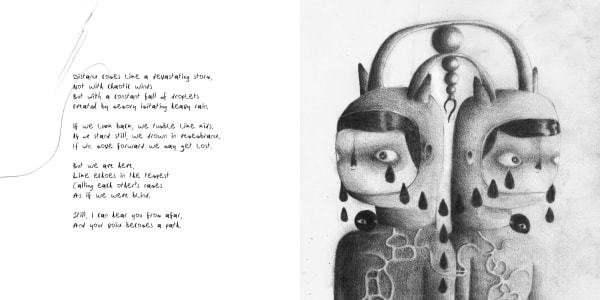 Distance comes like a devastating storm,
Not with chaotic winds
But with a constant fall of droplets
Created by memory imitating heavy rain.
If we look back, we tumble like kids.
If we stand still, we drown in remembrance,
If we move forward we may get lost.
But we are here,
Like echoes in the tempest
Calling each other's names
As if we were blind.
Still, I can hear you from afar,
And your becomes a path.